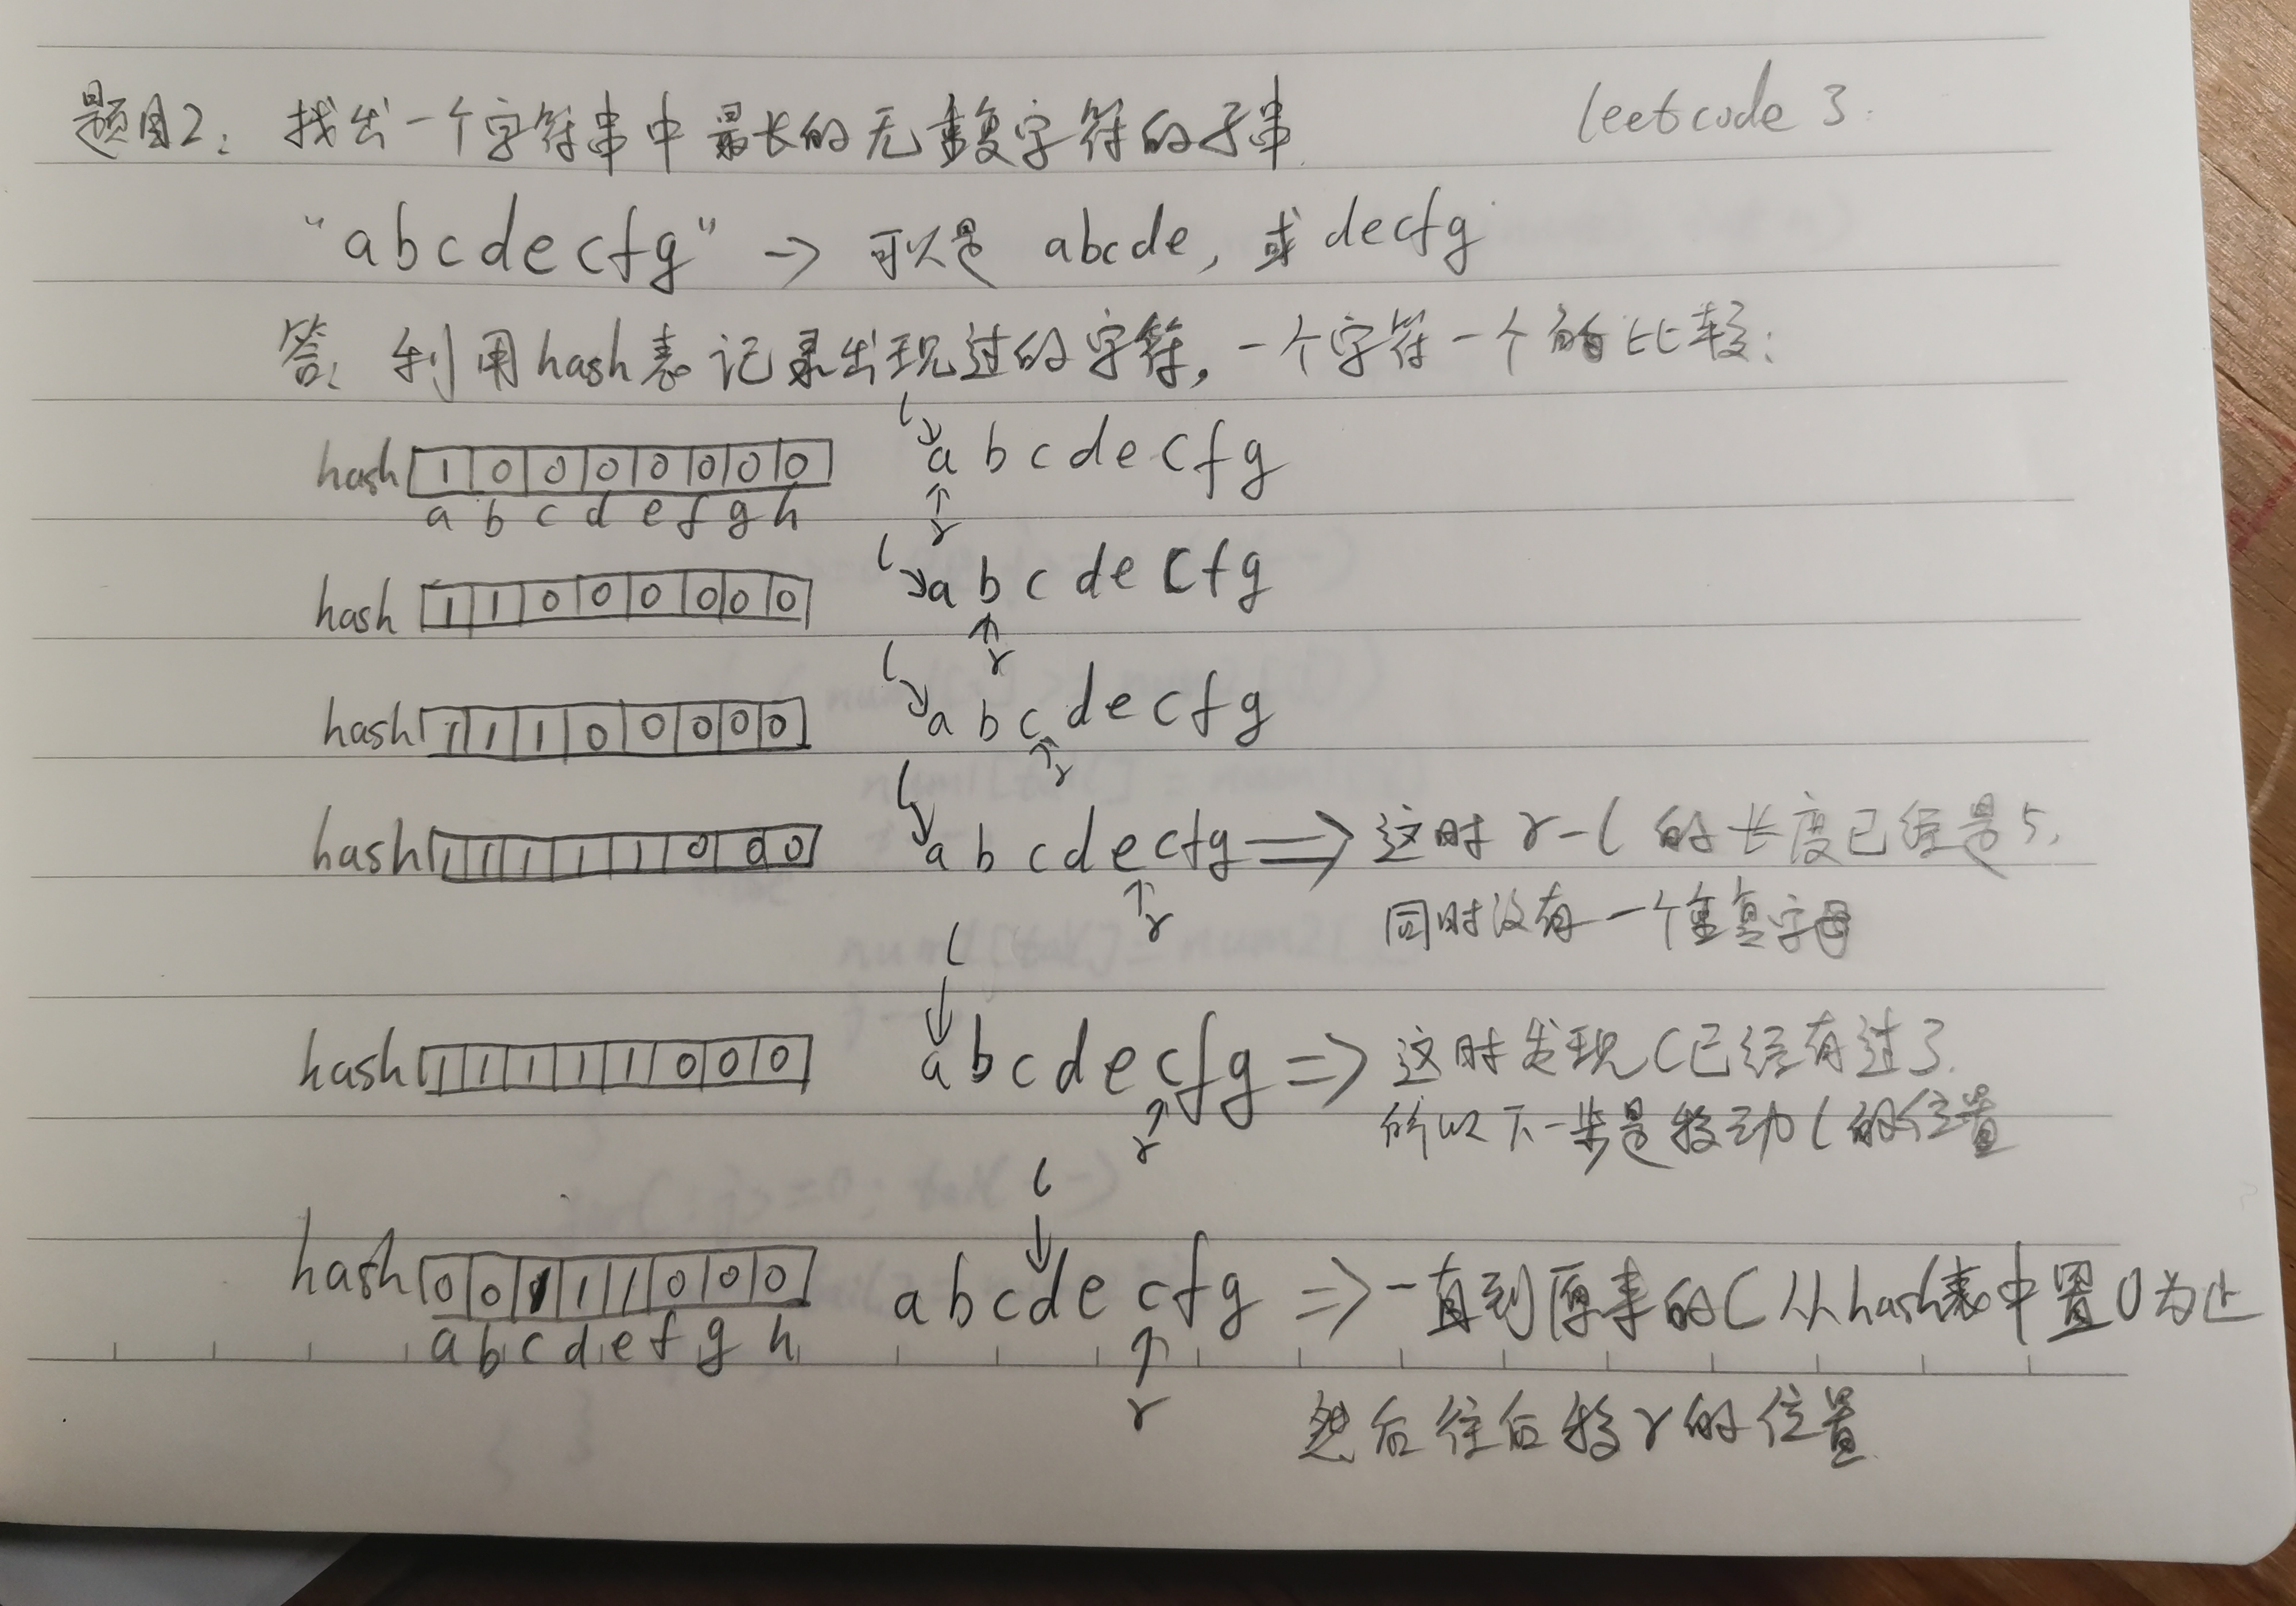 题目2: 找出一个字符串中最长的无重复字符的子串 leetcode 3.
"abcdecfg" -> 可以是 abcde, 或 decfg
答: 利用hash表记录出现过的字符, 一个字符一个的比较:
hash 1 0 0 0 0 0 0 0 l a b c d e c f g
a b c d e f g h r
hash 1 1 0 0 0 0 0 0 l a b c d e c f g
r
hash 1 1 1 0 0 0 0 0 l a b c d e c f g
r
hash 1 1 1 1 1 0 0 0 l a b c d e c f g => 这时 r-l 的长度已经是5,
r 同时没有一个重复字母
l
hash 1 1 1 1 1 0 0 0 a b c d e c f g => 这时发现c已经有过了.
r 所以下一步是移动l的位置
l
hash 0 0 1 1 1 0 0 0 a b c d e c f g => 一直到原来的C从hash表中置0为止
a b c d e f g h r
然后往后移r的位置